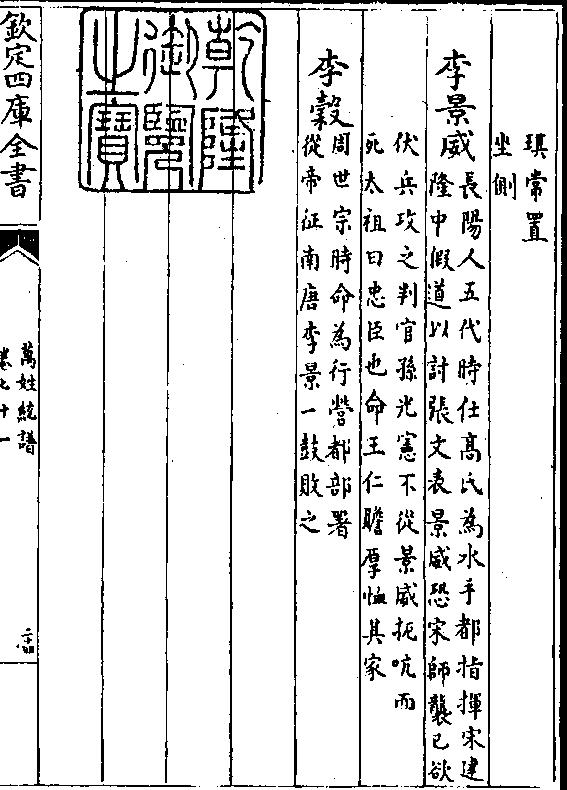 琪常置
坐側
李景威
長陽人五代時仕高氏為水手都指揮宋建
隆中假道以討張文表景威恐宋師襲已欲
伏兵攻之判官孫光憲不從景威扼吭而
死太祖曰忠臣也命王仁贍厚恤其家
李穀
周世宗時命為行營都部署
從帝征南唐李景一鼓敗之
乾隆
御覽
之寶
欽定四庫全書
萬姓統譜
卷七十一